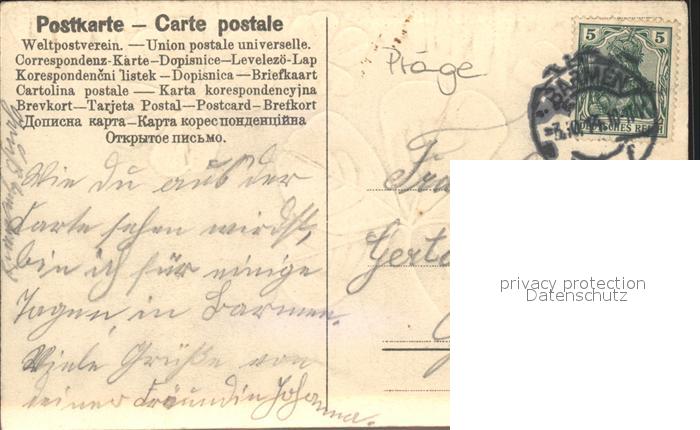 Postkarte – Carte postale
Weltpostverein. — Union postale universelle.
Correspondenz-Karte – Dopisnice – Levelező-Lap
Korespondenční listek – Dopisnica – Briefkaart
Cartolina postale – Karta korespondencyjna
Brevkort – Tarjeta Postal – Postcard – Brefkort
Дописна карта – Карта кореспонденційна
Открытое письмо.
Wie du aus der
Karte sehen wirdst,
bin ich für einige
Tagen in Barmen.
Viele Grüße von
deiner Freundin Johanna.
Präge
5 5
DEUTSCHES REICH
BARMEN
Gerta
privacy protection
Datenschutz